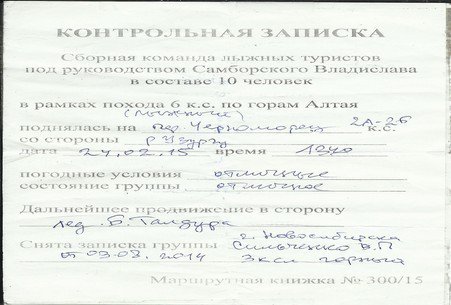 КОНТРОЛЬНАЯ ЗАПИСКА
Сборная команда лыжных туристов
под руководством Самборского Владислава
в составе 10 человек
в рамках похода 6 к.с. по горам Алтая
(лыжный)
поднялась на пер. Черноморец 2А-2Б к.с.
со стороны р
дата 24.02.15 время
погодные условия отличные
состояние группы отличное
Дальнейшее продвижение в сторону
лед. Б. Талдура
Снята записка группы г. Новосибирска
Сильченко В.П
от 03.08.2014
Маршрутная книжка № 300/15